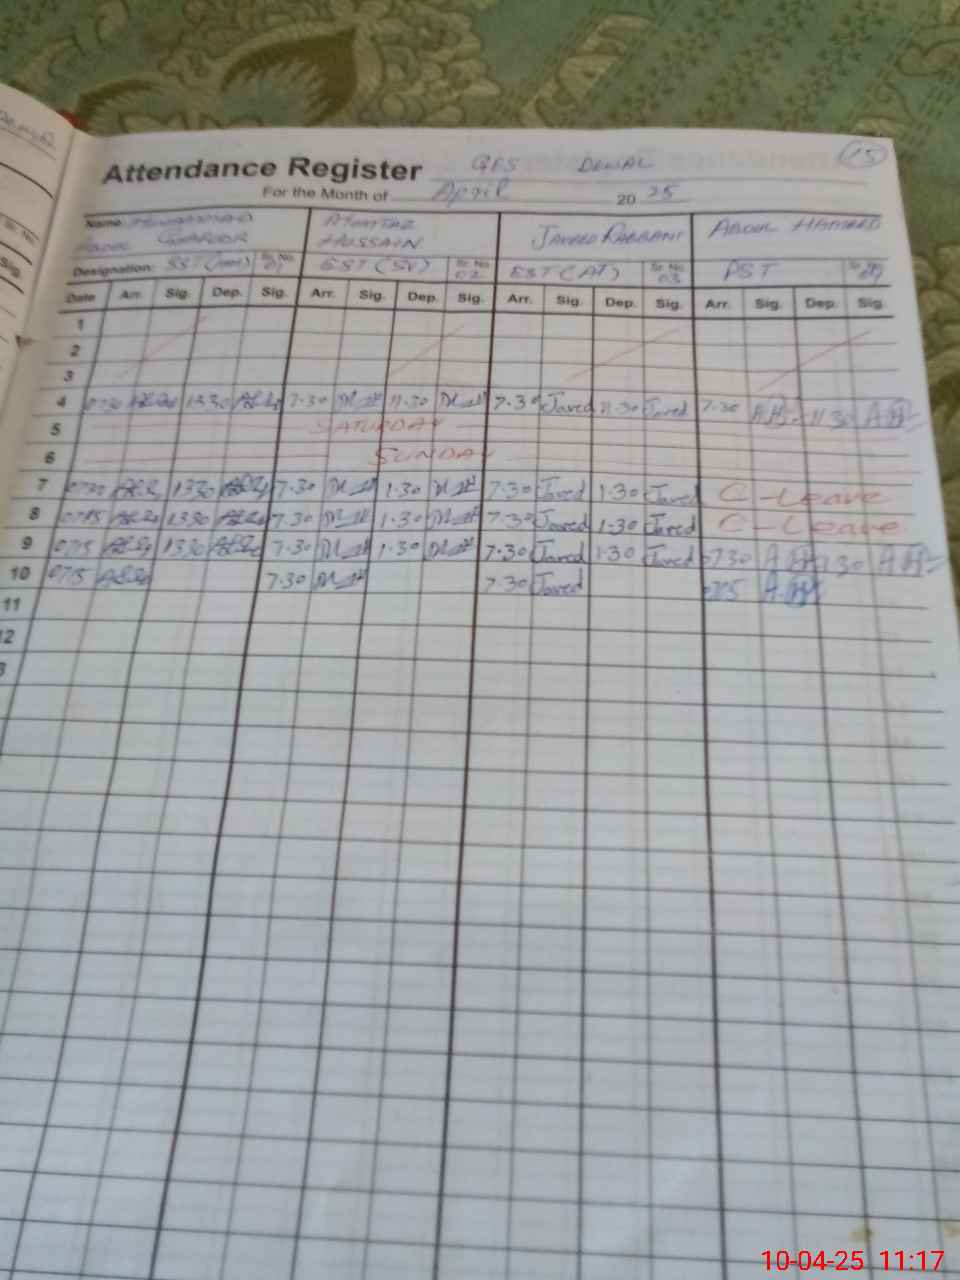 Attendance Register GES DEWAL 15
For the Month of April 20 25
Name MUHAMMAD MUMTAZ JAVAED RABBANI ABDUL HAMEED
ABDUL GHAFOOR HUSSAIN
Designation: SST Sr. No 01 EST (SV) Sr. No 02 EST (AT) Sr. No 03 PST Sr. No
Date Arr. Sig. Dep. Sig. Arr. Sig. Dep. Sig. Arr. Sig. Dep. Sig. Arr. Sig. Dep. Sig.
1
2
3
4 0730 1330 7.30 11.30 7.30 Javed 11.30 Javed 7.30 11 30
5 SATURDAY
6 SUNDAY
7 0730 1330 7.30 1.30 7.30 Javed 1.30 Javed C-Leave
8 0715 1330 7.30 1.30 7.30 Javed 1.30 Javed C-Leave
9 0715 1330 7.30 1.30 7.30 Javed 1.30 Javed 0730 130
10 0715 7.30 7.30 Javed
11
12
3
Sr. No
Sig.
10-04-25 11:17